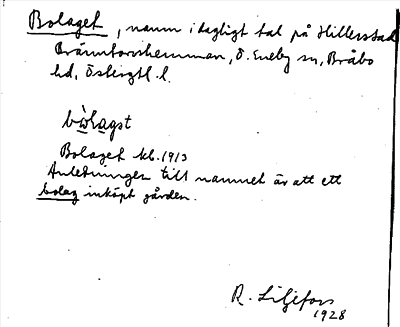 Bolaget, namn i dagligt tal på Hillerstad
Bränntorshemman, Ö. Eneby sn, Bråbo
hd, Östergtl. l.
bòlagət
Bolaget kb. 1913
Anledningen till namnet är att ett
bolag inköpt gården.
R. Liljefors
1928